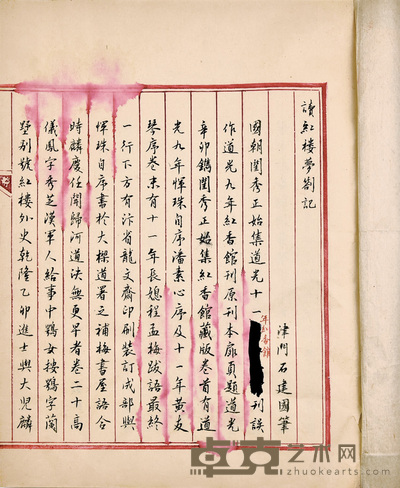 讀紅樓夢劄記
津門石建國筆
國朝閨秀正始集道光十一年紅香館刊誤
作道光九年紅香館刊原刊本扉頁題道光
辛卯鐫閨秀正始集紅香館藏版卷首有道
光九年惲珠自序潘素心序及十一年黃友
琴序卷末有十一年長媳程孟梅跋語最終
一行下方有汴省龍文齋印刷裝訂成部與
惲珠自序書於大樑道署之補梅書屋語合
時麟慶任開歸河道決無更早者卷二十高
儀鳳字秀芝漢軍人給事中鶚女按鶚字蘭
墅別號紅樓外史乾隆乙卯進士與大兒麟
卓克艺术网
zhuokearts.com